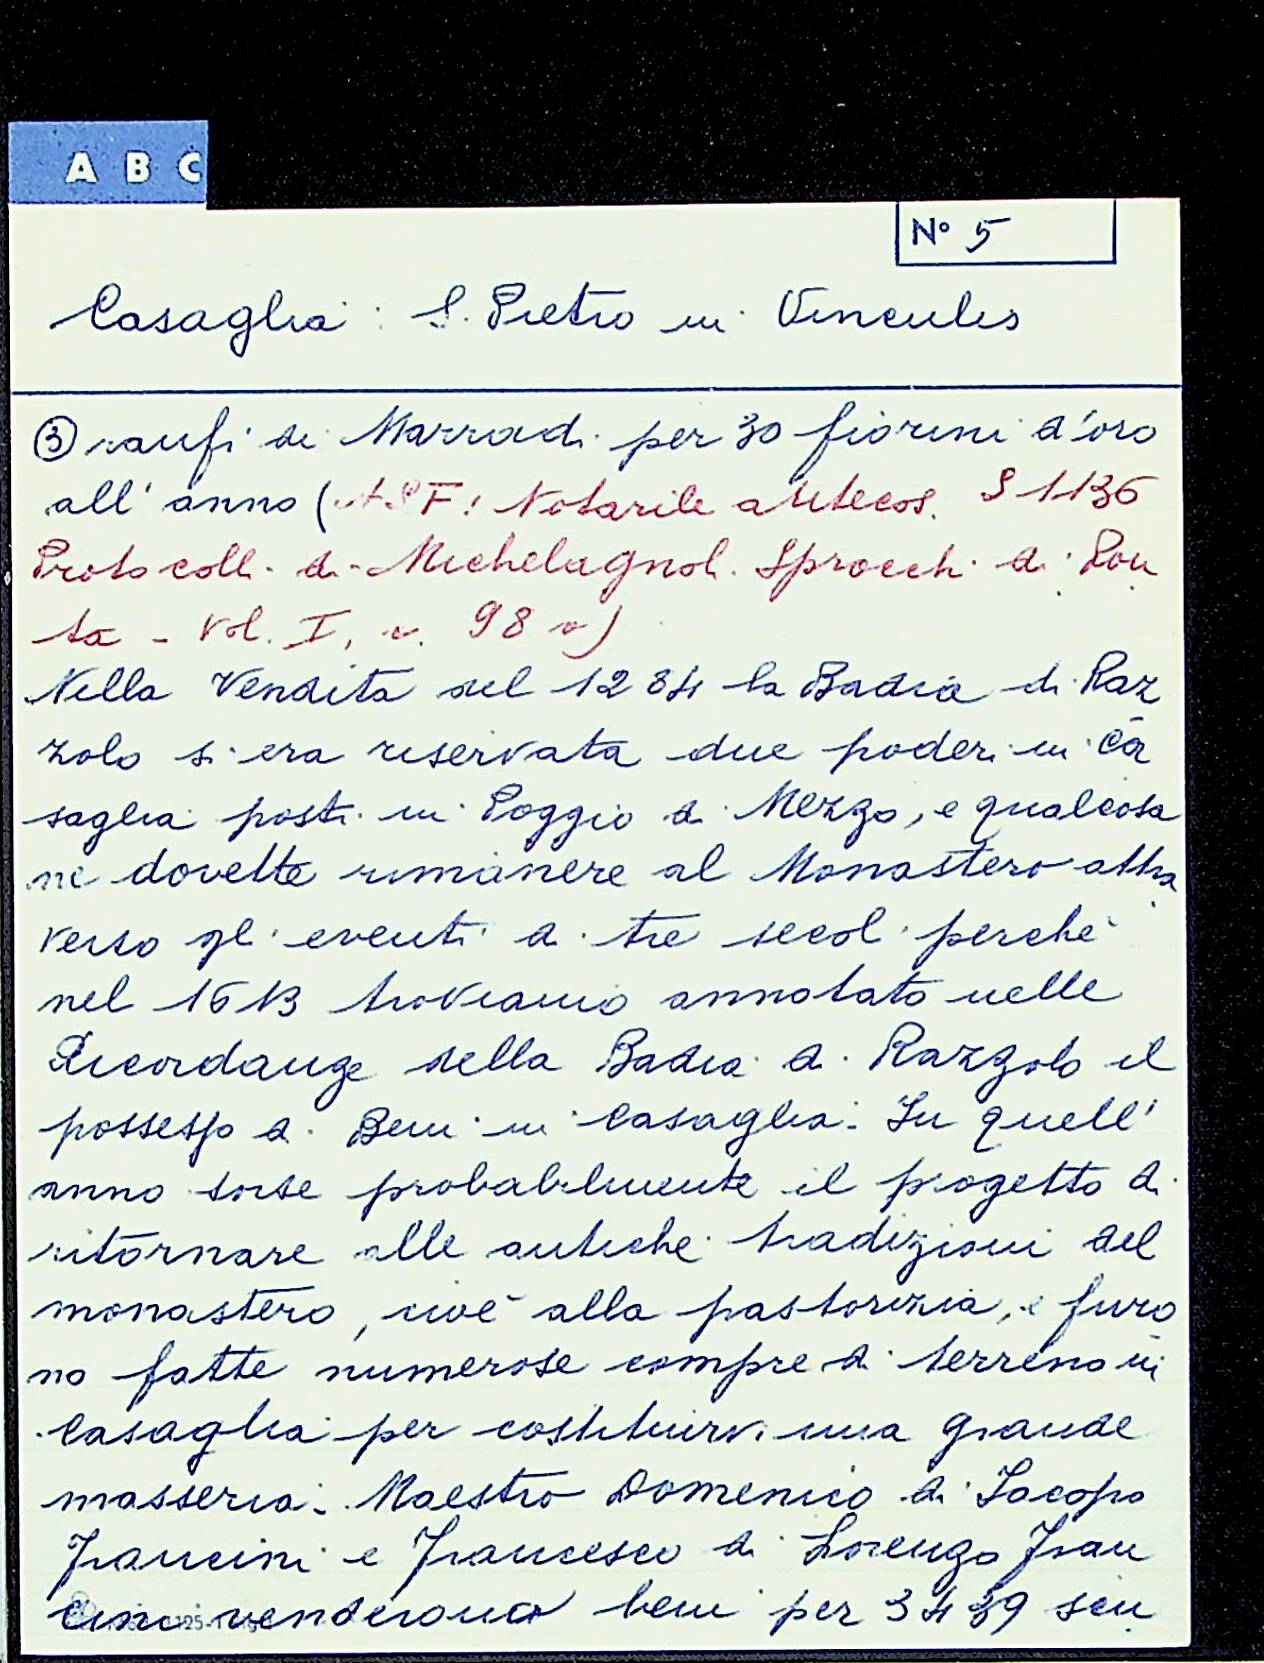 A B C
N° 5
Casaglia: S. Pietro in Vinculis
③ raufi di Marradi per 30 fiorini d'oro
all'anno (ASF: Notarile antecos. S 1136
Protocolli di Michelagnoli Sprocchi di Lon
ta - Vol. I, c. 98 v)
Nella vendita del 1284 la Badia di Raz
zolo si era riservata due poderi in Ca
saglia posti in Poggio di Mezzo, e qualcosa
ne dovette rimanere al Monastero attra
verso gli eventi di tre secoli perchè
nel 1613 troviamo annotato nelle
Ricordanze della Badia di Razzolo il
possesso di Beni in Casaglia. In quell'
anno sorse probabilmente il progetto di
ritornare alle antiche tradizioni del
monastero, cioè alla pastorizia, e furo
no fatte numerose compre di terreno in
Casaglia per costituirvi una grande
masseria. Maestro Domenico di Iacopo
Francini e Francesco di Lorenzo Fran
cini venderono beni per 3439 scu